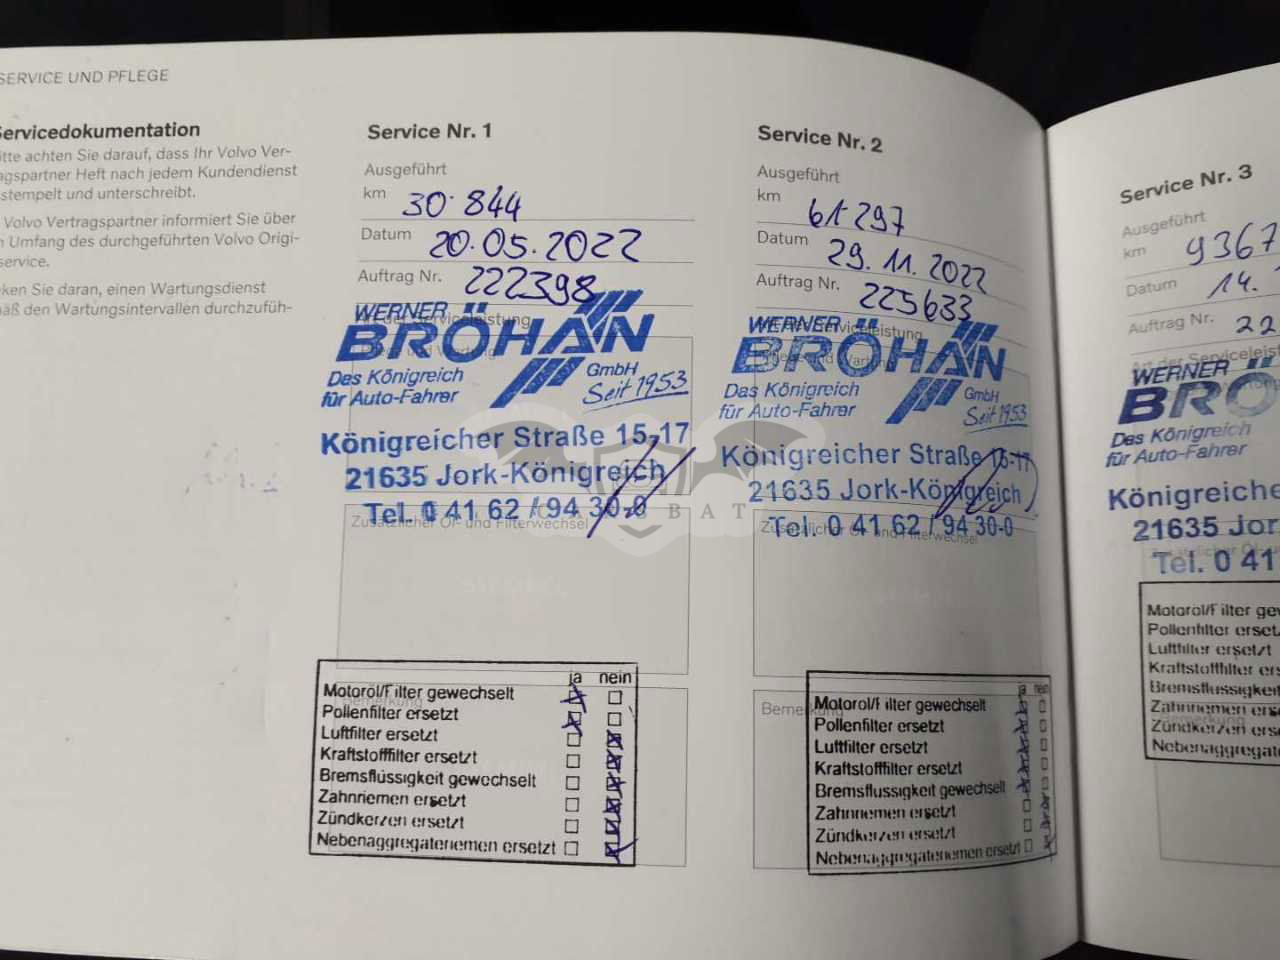 SERVICE UND PFLEGE
Servicedokumentation
itte achten Sie darauf, dass Ihr Volvo Ver-
agspartner Heft nach jedem Kundendienst
stempelt und unterschreibt.
Volvo Vertragspartner informiert Sie über
n Umfang des durchgeführten Volvo Origi-
service.
ken Sie daran, einen Wartungsdienst
äß den Wartungsintervallen durchzufüh-
Service Nr. 1
Ausgeführt
km 30.844
Datum 20.05.2022
Auftrag Nr. 222398
Art der Serviceleistung
Pflege und Wartung
WERNER
BRÖHAN
GmbH
Das Königreich
für Auto-Fahrer
Seit 1953
Königreicher Straße 15-17
21635 Jork-Königreich
Tel. 0 41 62 / 94 30-0
Zusätzlicher Öl- und Filterwechsel
Bemerkung
ja nein
Motoröl/Filter gewechselt
Pollenfilter ersetzt
Luftfilter ersetzt
Kraftstofffilter ersetzt
Bremsflüssigkeit gewechselt
Zahnriemen ersetzt
Zündkerzen ersetzt
Nebenaggregateriemen ersetzt
Service Nr. 2
Ausgeführt
km 61.297
Datum 29.11.2022
Auftrag Nr. 225633
Art der Serviceleistung
Pflege und Wartung
WERNER
BRÖHAN
GmbH
Das Königreich
für Auto-Fahrer
Seit 1953
Königreicher Straße 15-17
21635 Jork-Königreich
Tel. 0 41 62 / 94 30-0
Zusätzlicher Öl- und Filterwechsel
Bemerkung
ja nein
Motoröl/Filter gewechselt
Pollenfilter ersetzt
Luftfilter ersetzt
Kraftstofffilter ersetzt
Bremsflüssigkeit gewechselt
Zahnriemen ersetzt
Zündkerzen ersetzt
Nebenaggregateriemen ersetzt
Service Nr. 3
Ausgeführt
km 9367
Datum 14.
Auftrag Nr. 22
Art der Serviceleist
WERNER
BRÖ
Das Königreich
für Auto-Fahrer
Königreiche
21635 Jor
Tel. 0 41
Motoröl/Filter gew
Pollenfilter erset
Luftfilter ersetzt
Kraftstofffilter ers
Bremsflüssigkeit
Zahnriemen erse
Zündkerzen erse
Nebenaggregate
Bemerkung
CARSBAT